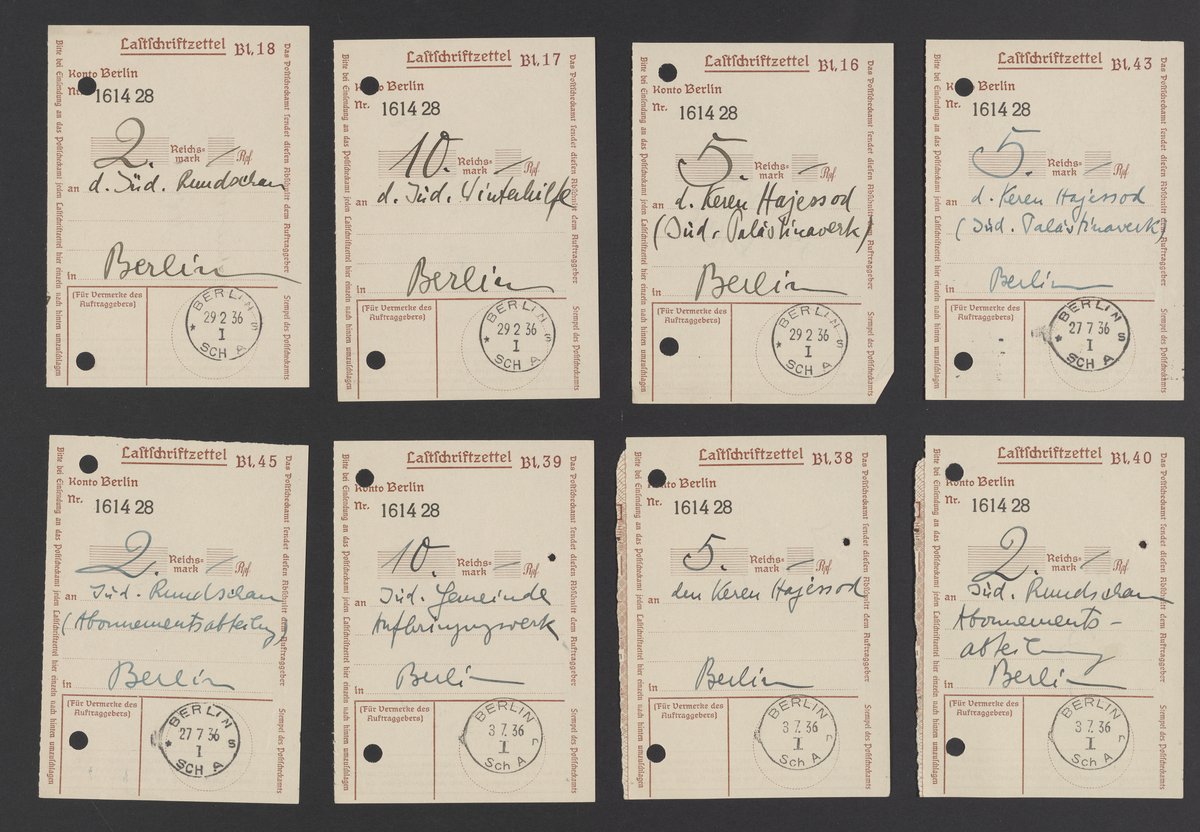 Lastschriftzettel Bl. 18
Konto Berlin
Nr. 1614 28
2. Reichsmark / Rpf.
an d. Jüd. Rundschau
in Berlin
(Für Vermerke des
Auftraggebers)
BERLIN S
29 2 36
I
SCH A
Bitte bei Einsendung an das Postscheckamt jeden Lastschriftzettel hier einzeln nach hinten umzuschlagen
Das Postscheckamt sendet diesen Abschnitt dem Auftraggeber
Stempel des Postscheckamts
Lastschriftzettel Bl. 17
Konto Berlin
Nr. 1614 28
10. Reichsmark / Rpf.
an d. Jüd. Winterhilfe
in Berlin
(Für Vermerke des
Auftraggebers)
BERLIN S
29 2 36
I
SCH A
Bitte bei Einsendung an das Postscheckamt jeden Lastschriftzettel hier einzeln nach hinten umzuschlagen
Das Postscheckamt sendet diesen Abschnitt dem Auftraggeber
Stempel des Postscheckamts
Lastschriftzettel Bl. 16
Konto Berlin
Nr. 1614 28
5. Reichsmark / Rpf.
an d. Keren Hajessod
(Jüd. Palästinawerk)
in Berlin
(Für Vermerke des
Auftraggebers)
BERLIN S
29 2 36
I
SCH A
Bitte bei Einsendung an das Postscheckamt jeden Lastschriftzettel hier einzeln nach hinten umzuschlagen
Das Postscheckamt sendet diesen Abschnitt dem Auftraggeber
Stempel des Postscheckamts
Lastschriftzettel Bl. 43
Konto Berlin
Nr. 1614 28
5. Reichsmark / Rpf.
an d. Keren Hajessod
(Jüd. Palästinawerk)
in Berlin
(Für Vermerke des
Auftraggebers)
BERLIN S
27 7 36
I
SCH A
Bitte bei Einsendung an das Postscheckamt jeden Lastschriftzettel hier einzeln nach hinten umzuschlagen
Das Postscheckamt sendet diesen Abschnitt dem Auftraggeber
Stempel des Postscheckamts
Lastschriftzettel Bl. 45
Konto Berlin
Nr. 1614 28
2. Reichsmark / Rpf.
an Jüd. Rundschau
(Abonnementsabteilung)
in Berlin
(Für Vermerke des
Auftraggebers)
BERLIN S
27 7 36
I
SCH A
Bitte bei Einsendung an das Postscheckamt jeden Lastschriftzettel hier einzeln nach hinten umzuschlagen
Das Postscheckamt sendet diesen Abschnitt dem Auftraggeber
Stempel des Postscheckamts
Lastschriftzettel Bl. 39
Konto Berlin
Nr. 1614 28
10. Reichsmark / Rpf.
an Jüd. Gemeinde
Aufbringungswerk
in Berlin
(Für Vermerke des
Auftraggebers)
BERLIN
3 7. 36
I
Sch A
Bitte bei Einsendung an das Postscheckamt jeden Lastschriftzettel hier einzeln nach hinten umzuschlagen
Das Postscheckamt sendet diesen Abschnitt dem Auftraggeber
Stempel des Postscheckamts
Lastschriftzettel Bl. 38
Konto Berlin
Nr. 1614 28
5. Reichsmark / Rpf.
an den Keren Hajessod
in Berlin
(Für Vermerke des
Auftraggebers)
BERLIN
3 7. 36
I
Sch A
Bitte bei Einsendung an das Postscheckamt jeden Lastschriftzettel hier einzeln nach hinten umzuschlagen
Das Postscheckamt sendet diesen Abschnitt dem Auftraggeber
Stempel des Postscheckamts
Lastschriftzettel Bl. 40
Konto Berlin
Nr. 1614 28
2. Reichsmark / Rpf.
an Jüd. Rundschau
Abonnements-
abteilung
in Berlin
(Für Vermerke des
Auftraggebers)
BERLIN
3 7. 36
I
Sch A
Bitte bei Einsendung an das Postscheckamt jeden Lastschriftzettel hier einzeln nach hinten umzuschlagen
Das Postscheckamt sendet diesen Abschnitt dem Auftraggeber
Stempel des Postscheckamts